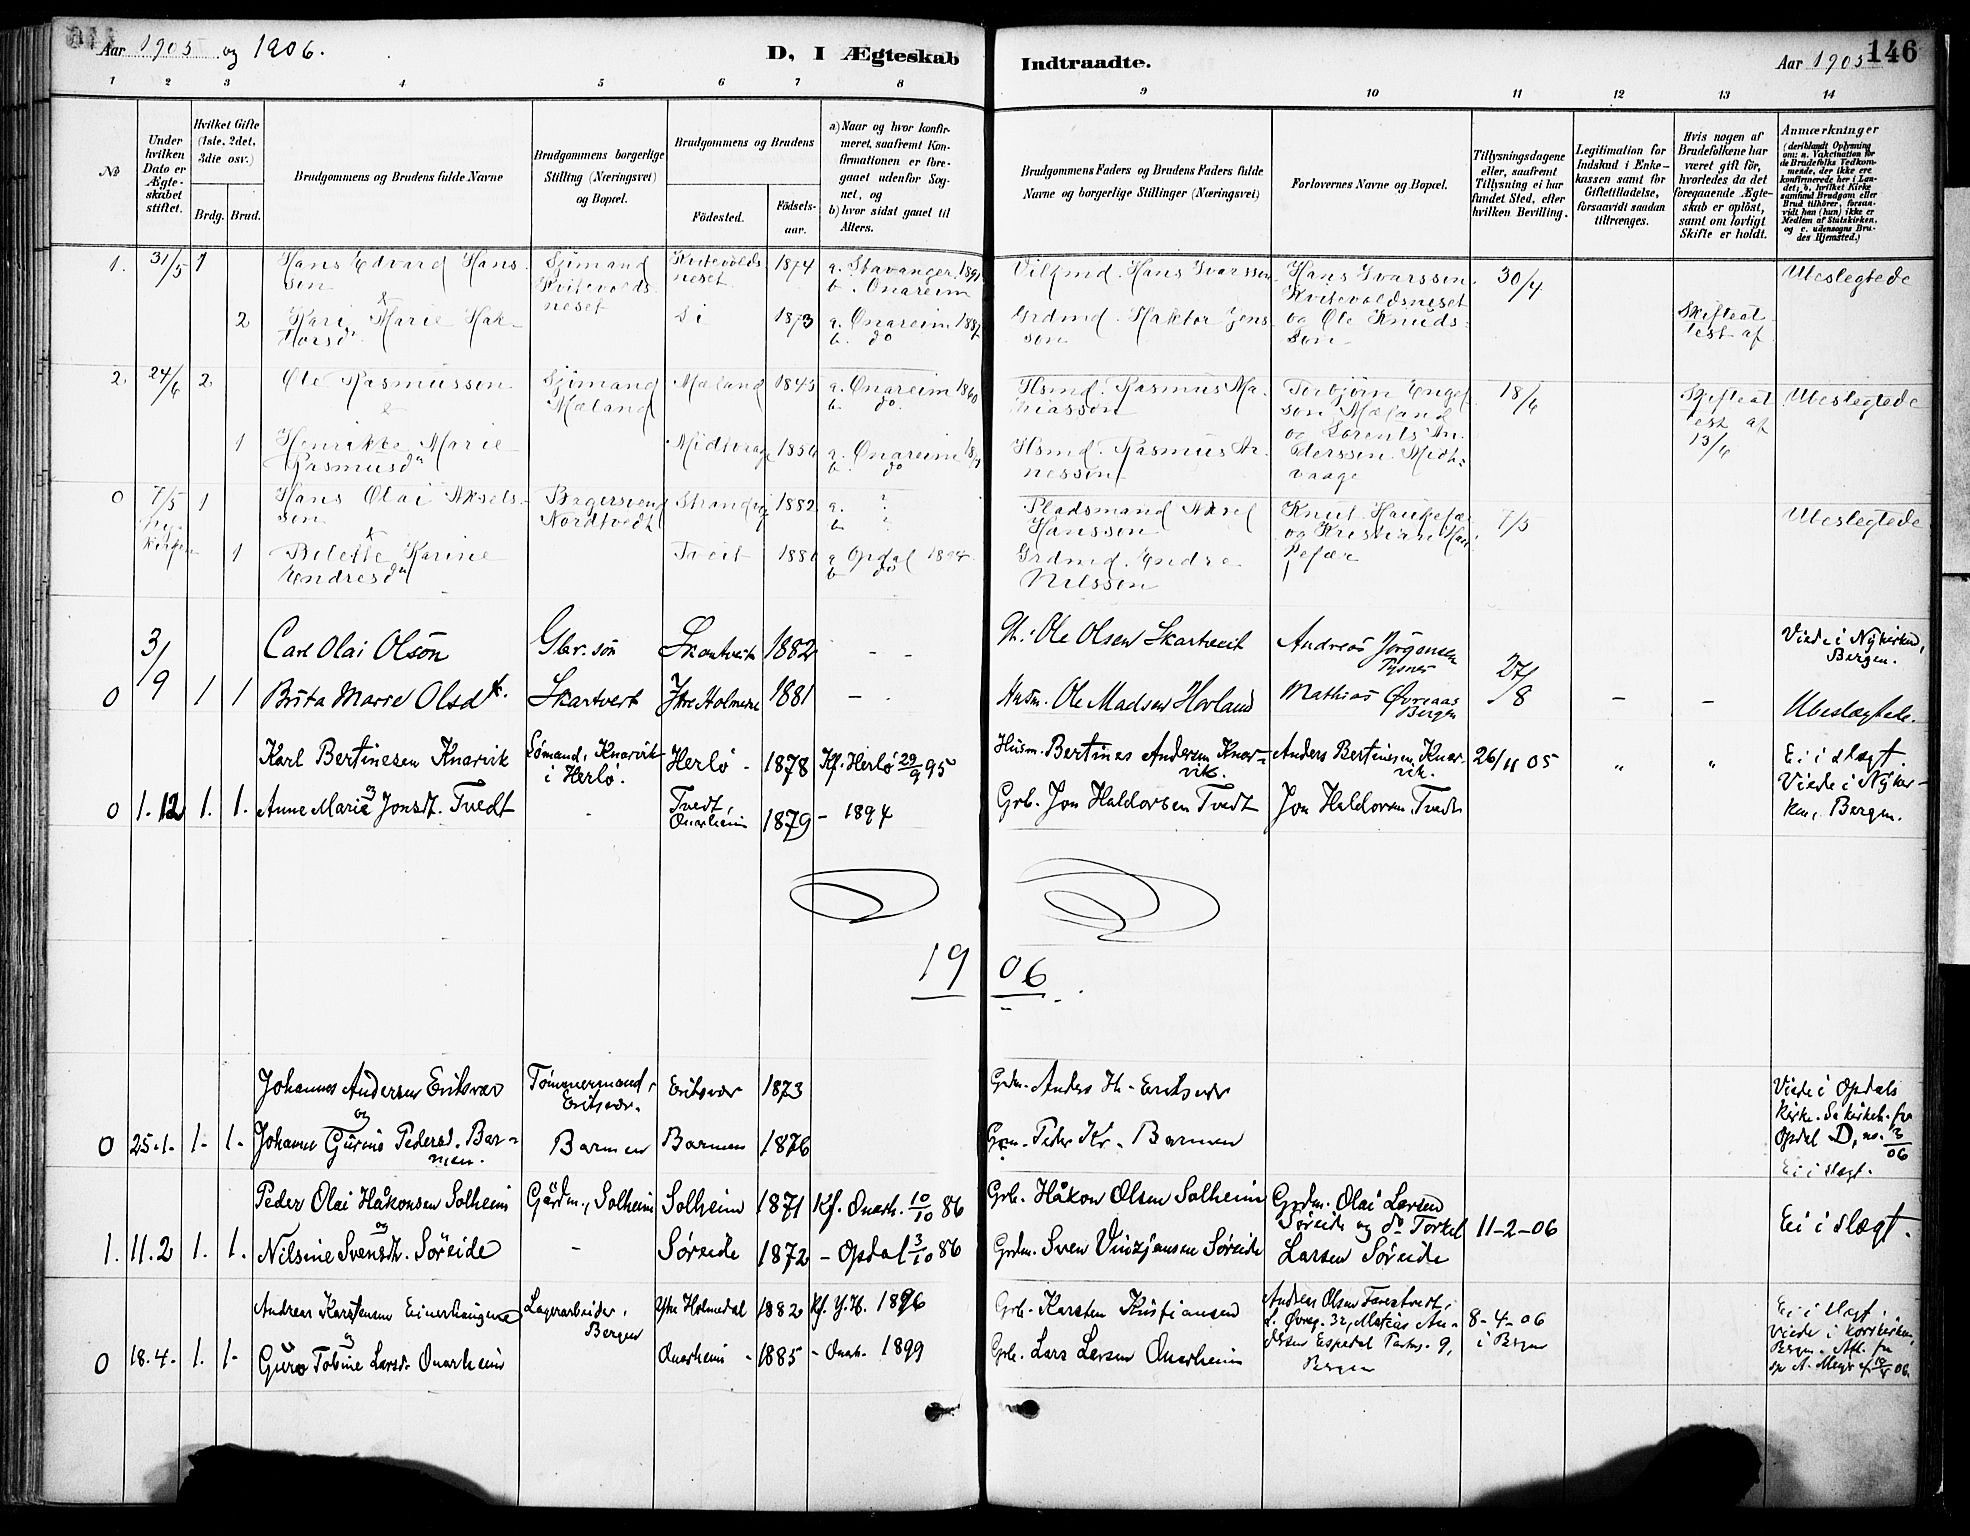 Aar 1905 og 1906.
D, I Ægteskab Indtraadte.
Aar 1905
146
1 2 3 4 5 6 7 8 9 10 11 12 13 14
No
Under hvilken Dato er Ægteskabet stiftet.
Hvilket Gifte (1ste, 2det, 3die osv.)
Brdg. Brud.
Brudgommens og Brudens fulde Navne
Brudgommens borgerlige Stilling (Næringsvei) og Bopæl.
Brudgommens og Brudens
Födested. Födselsaar.
a) Naar og hvor konfirmeret, saafremt Konfirmationen er foregaaet udenfor Sognet, og
b) hvor sidst gaaet til Alters.
Brudgommens Faders og Brudens Faders fulde Navne og borgerlige Stillinger (Næringsvei)
Forlovernes Navne og Bopæl.
Tillysningsdagene eller, saafremt Tillysning ei har fundet Sted, efter hvilken Bevilling.
Legitimation for Indskud i Enkekassen samt for Giftetilladelse, forsaavidt saadan tiltrænges.
Hvis nogen af Brudefolkene har været gift för, hvorledes da det foregaaende Ægteskab er oplöst, samt om lovligt Skifte er holdt.
Anmærkninger (deriblandt Oplysning om: a. Vakcination for de Brudefolks Vedkommende, der ikke ere konfirmerede her i Landet, b. hvilket Kirkesamfund Brudgom eller Brud tilhörer, forsaavidt han (hun) ikke er Medlem af Statskirken, og c. udensogns Brudes Hjemsted.)
1. 31/5 1 Hans Edvard Hanssen Sjømand Kvitevoldsneset Kvitevoldsneset 1874 a. Stavanger b. Onareim Hans Ivarssen Hans Ivarssen Kvitevoldsneset og Ole Knudssen 30/4 Ubeslegtede
2 Kari Marie 1873 a. Onareim b. do Grdmd. Jenssen Skifteattest af
2. 24/6 2 Ole Rasmussen Sjømand Mæland Mæland 1845 a. Onareim 1860 b. do. Hsmd. Rasmus 18/6 Skifteattest af 13/6 Ubeslegtede
1 Henrikke Marie Rasmusdtr 1856 a. Onareim b. do Hsmd. Rasmus Arnessen
0 7/5 1 Hans Olai Akselssen Bagersvend Nordtvedt 1882 a. ? b. ? Pladsmand Aksel Hanssen 7/5 Ubeslegtede
1 Karine Endresdtr Treit a. Opdal 1894 b. do Grdmd. Endre Nilssen
3/9 Carl Olai Olsön Gbr. sön Skartveit 1882 - - Ole Olsen Skartveit Andreas Jörgensen Tysnes 27/8 Viede i Nykirken, Bergen.
0 1 1 Brita Marie Olsdtr. Skartveit Ytre Holmene 1881 - Husm. Ole Madsen Hovland Mathias Øvreaas Bergen - - Ubeslægtede.
Karl Bertinesen Knarvik Sömand, Knarvik i Herlö. Herlö - 1878 Kf. Herlö 29/9 95 Husm. Bertines Andersen Knarvik. Anders Bertinesen, Knarvik. 26/11 05 " " Ei i slægt. Viede i Nykirken, Bergen.
og
0 1.12 1. 1. Anne Marie Jonsdt. Tvedt - Tvedt, Onarheim 1879 - 1894 Grb. Jon Haldorsen Tvedt Jon Haldorsen, Tvedt
1906
Johannes Andersen Eriksvær Tömmermand, Eriksvær. Eriksvær 1873 Grdm. Anders H. Eriksvær Viede i Opdals Kirke. Opdal D, no. 3/06 Ei i slægt.
og
0 25.1. 1. 1. Johanne Gurine Pedersd. Barmen. Barmen Barmen 1876 Peder Kr. Barmen
Peder Olai Håkonsen Solheim Gårdm., Solheim Solheim 1871 Kf. Onarh. 10/10 86 Grb. Håkon Olsen Solheim Grdm. Olai Larsen Söreide og do Torkel Larsen Söreide 11-2-06 Ei i slægt.
og
1. 11.2 1. 1. Nilsine Svensdt. Söreide - Söreide 1872 - Opdal 3/10 86 Grdm. Sven Vinzjansen Söreide
Andreas Karstensen Einerhaugene Lagerarbeider, Bergen Ytre Holmedal 1882 Kf. Y.H. 1896 Grb. Karsten Kristiansen Andreas Olsen 8-4-06 i Bergen Ei i slægt. Viede i Korskirken, Bergen.
og
0 18.4. 1. 1. Guro Tobine Larsd. Onarheim Onarheim - 1885 - Onarh. 1899 Grb. Lars Larsen Onarheim Bergen